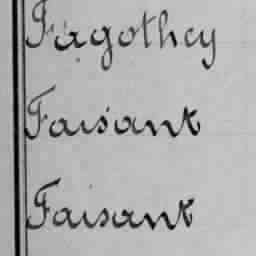 Fagothey
Faisant
Faisant